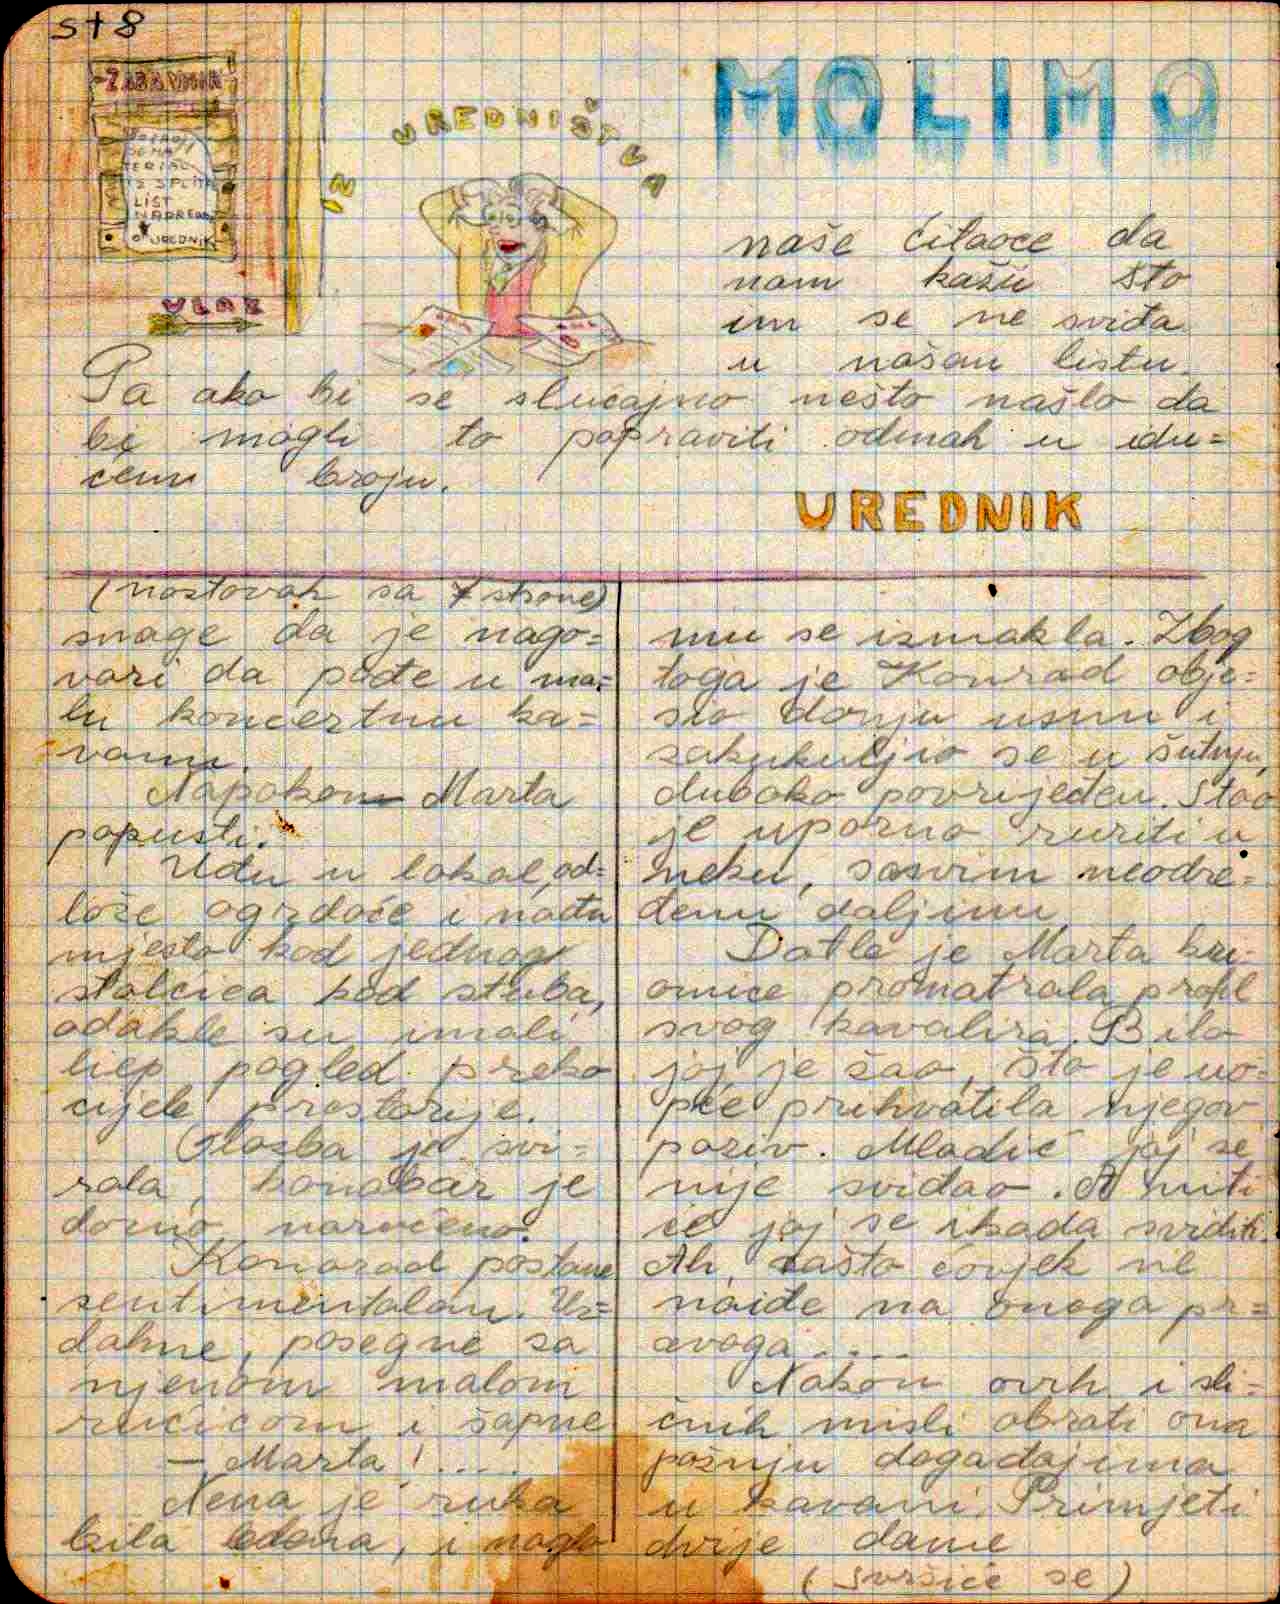 st 8
ZABAVNIK
LIST
NAPREDA
UREDNIK
ULAZ
IZ
UREDNIŠTVA
MOLIMO
naše čitaoce da
nam kažu što
im se ne sviđa
u našem listu.
Pa ako bi se slučajno nešto našlo da
bi mogli to popraviti odmah u idu=
ćem broju.
UREDNIK
(nastavak sa 7 strane)
snage da je nago=
vori da pođe u ma=
lu koncertnu ka=
vanu.
Napokon Marta
popusti.
Uđu u lokal, od=
lože ogrdače i nađu
mjesto kod jednog
stolčića kod stuba,
odakle su imali
liep pogled preko
cijele prostorije.
Glasba je svi=
rala, konobar je
donio naručeno.
Konarad postane
sentimentalan. Uz=
dahne, posegne sa
njenom malom
ručicom i šapne
— Marta !....
Nena je ruka
bila ledena, i naglo
mu se izmakla. Zbog
toga je Konrad obje=
sio donju usnu i
zakukuljio se u šutnju,
duboko povrijeđen. Stao
je uporno zuriti u
neku, sasvim neodre=
đenu daljinu
Dotle je Marta kri=
omice promatrala profil
svog kavalira. Bilo
joj je žao, što je uo=
pće prihvatila njegov
poziv. Mladić joj se
nije sviđao. A niti
će joj se ikada sviditi.
Ah, zašto čovjek ne
naiđe na onoga pr=
avoga....
Nakon ovih i sli=
čnih misli obrati ona
pažnju događajima
u kavani. Primjeti
dvije dame
(svršiće se)